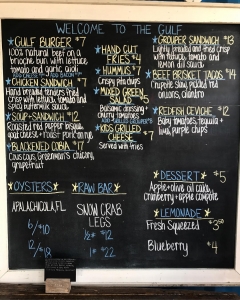 WELCOME TO THE GULF
GULF BURGER $7
100% natural beef on a
brioche bun with lettuce
tomato and garlic aioli
ADD BACON $1
CHICKEN SANDWICH $7
Hand breaded tenders, fried
crisp with lettuce, tomato and
spicy buttermilk sauce
SOUP + SANDWICH $12
Roasted red pepper bisque,
goat cheese + roast pork on rye
BLACKENED COBIA $17
Couscous, Greenman's chicory,
grapefruit
HAND CUT
FRIES $4
HUMMUS $7
Crispy pita chips
MIXED GREEN
SALAD $5
Balsamic dressing
KIDS GRILLED
CHEESE $7
Served with fries
GROUPER SANDWICH $13
Lightly breaded and fried crisp
with lettuce, tomato and
lemon dill sauce
BEEF BRISKET TACOS $14
Chipotle slaw, pickled red
onions, cilantro
REDFISH CEVICHE $12
Baby tomatoes, tequila +
lime, purple chips
OYSTERS
APALACHICOLA, FL
6/$10
12/$18
RAW BAR
SNOW CRAB
LEGS
1/2# $12
1# $22
DESSERT $5
Apple + olive oil cake,
Cranberry + apple compote
LEMONADE
Fresh Squeezed $3
Blueberry $4